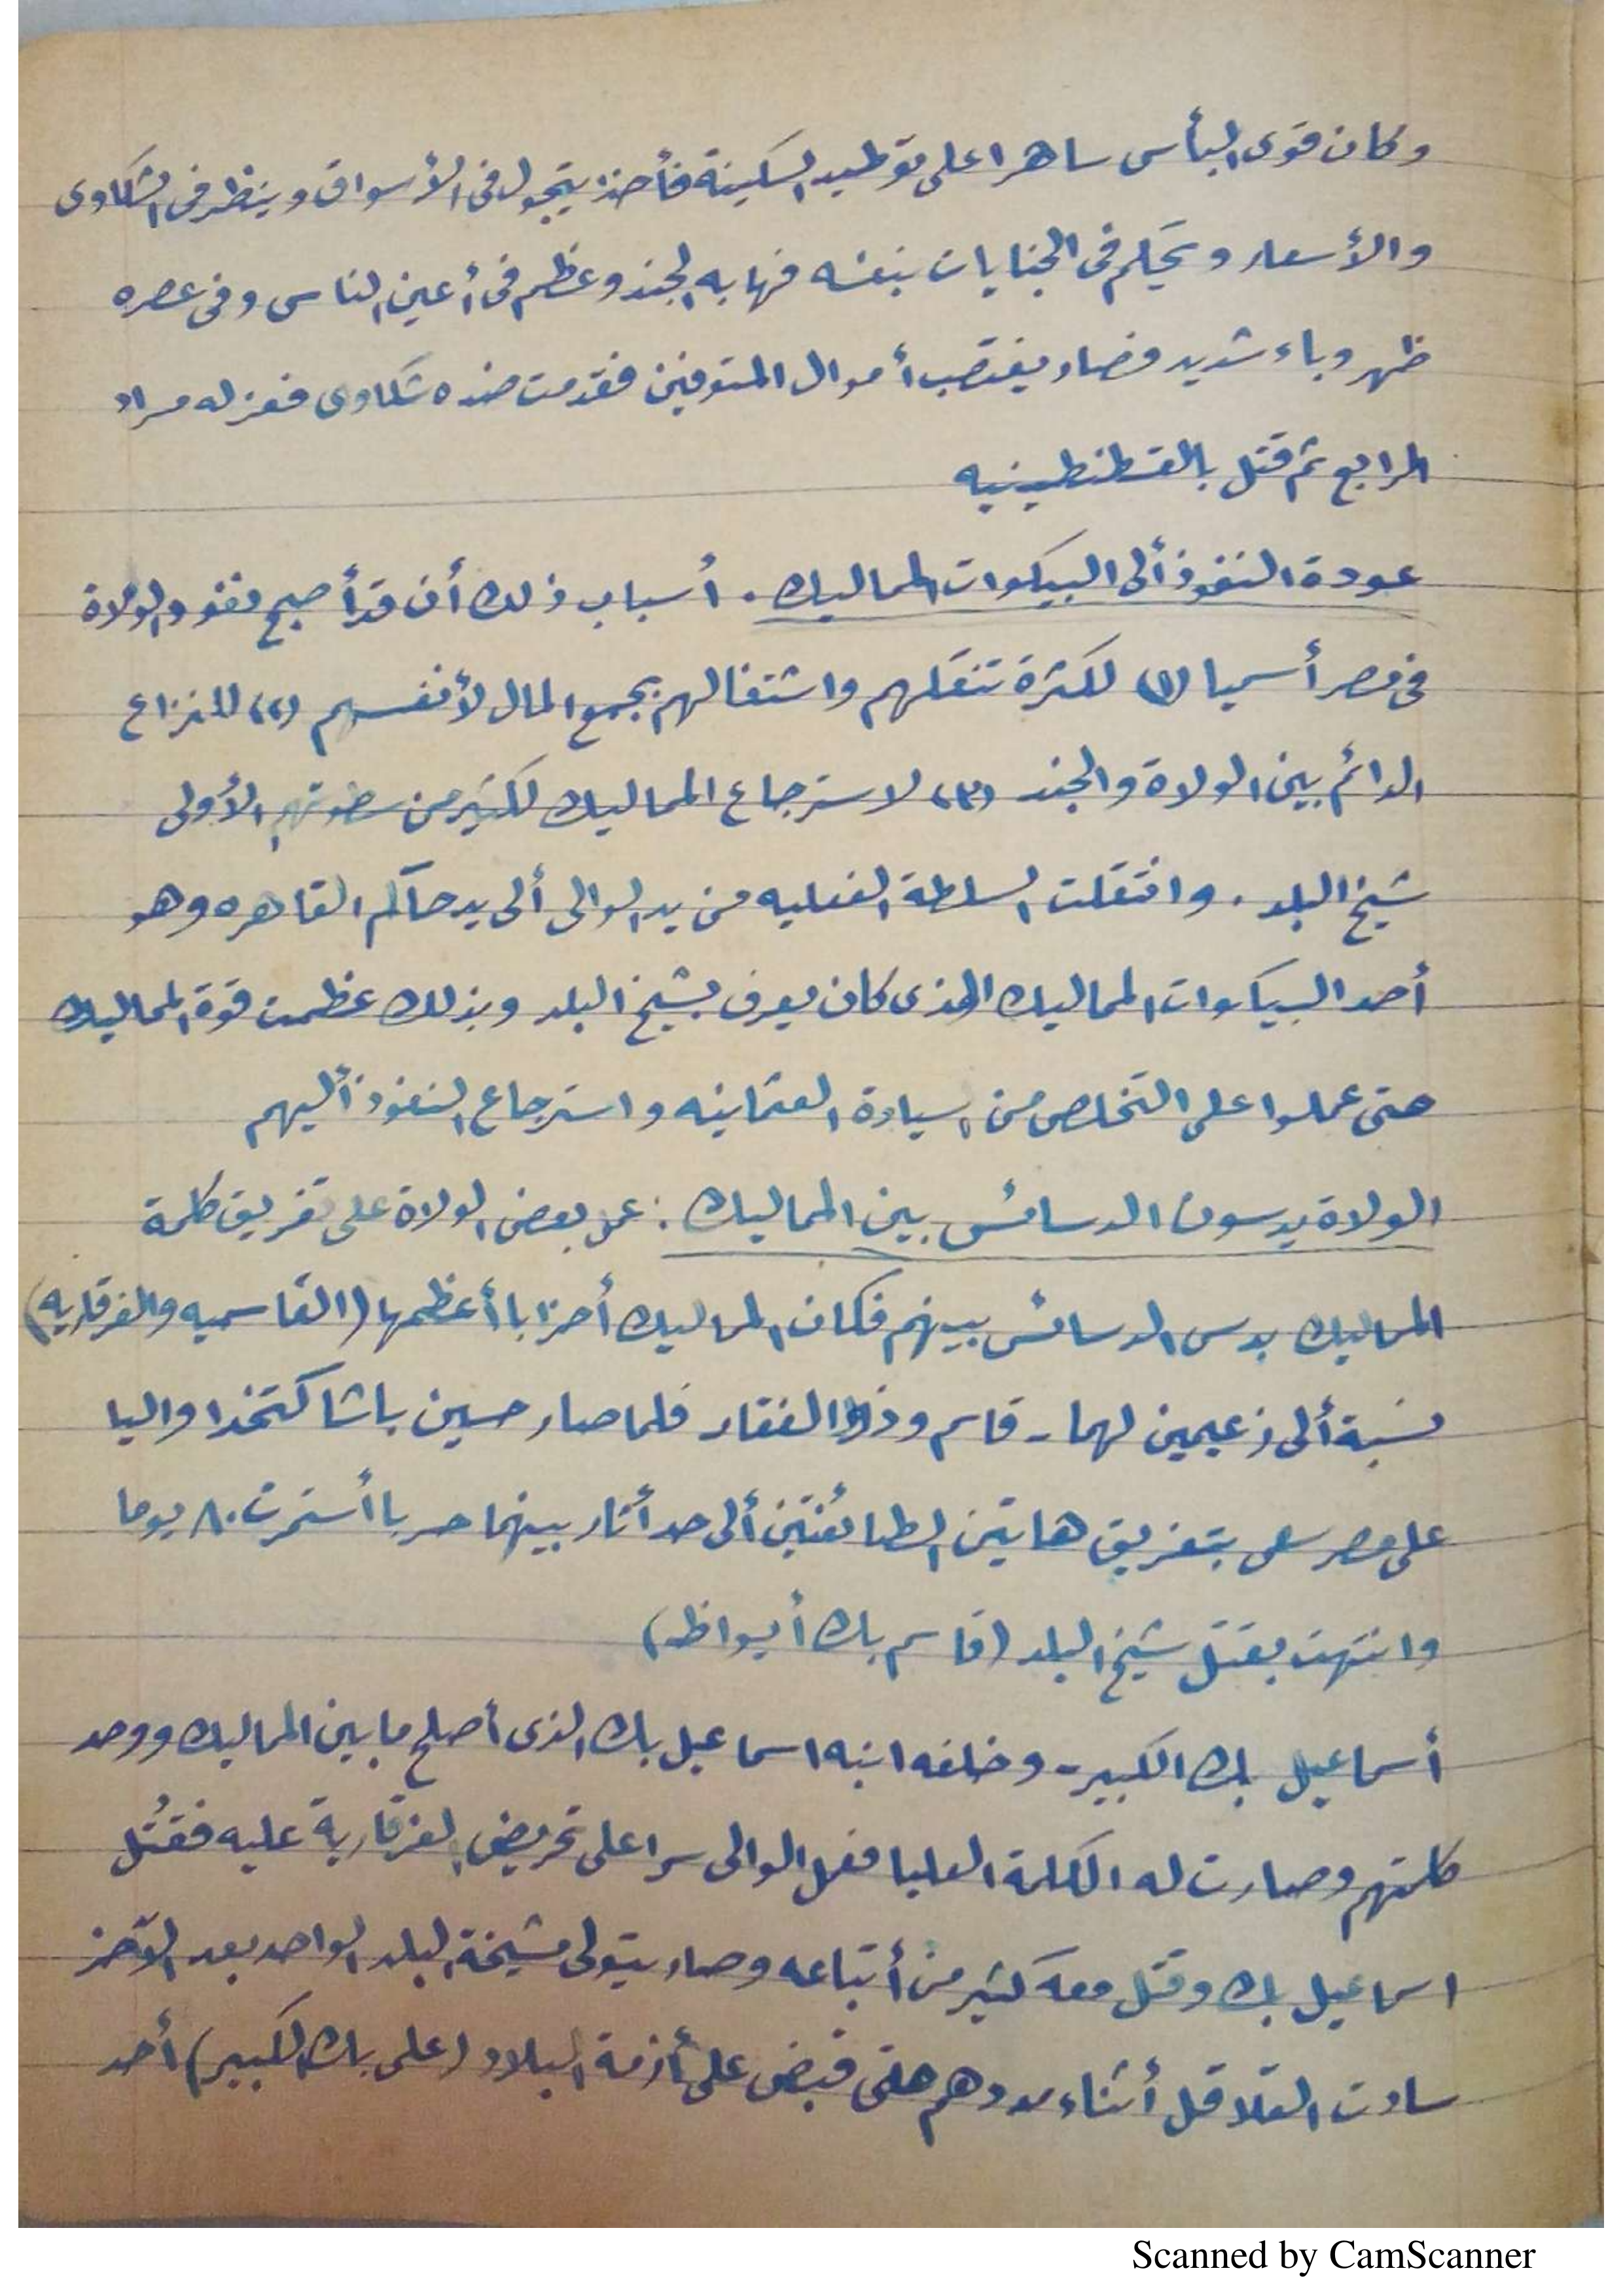 وكان قوى البأس ساهرا على توطيد السكينة فأخذ يتجول فى الأسواق وينظر فى الشكاوى
والأسعار ويحكم فى الجنايات بنفسه فهابه الجند وعظم فى أعين الناس وفى عصره
ظهر وباء شديد فصار يغتصب أموال المتوفين فقدمت ضده شكاوى فعزله مراد
الرابع ثم قتل بالقسطنطينيه
عودة النفوذ ألى البيكوات المماليك . أسباب ذلك أن قد أصبح نفوذ الولاة
فى مصر أسميا (١) لكثرة تنقلهم واشتغالهم بجمع المال لأنفسهم (٢) للنزاع
الدائم بين الولاة والجند (٣) لاسترجاع المماليك لكثير من سطوتهم الأولى
شيخ البلد . وانتقلت السلطة الفعليه من يد الوالى ألى يد حاكم القاهره وهو
أحد البيكوات المماليك الذى كان يعرف بشيخ البلد وبذلك عظمت قوة المماليك
حتى عملوا على التخلص من السيادة العثمانيه واسترجاع النفوذ أليهم
الولاة يدسون الدسائس بين المماليك : عمل بعض الولاة على تفريق كلمة
المماليك بدس الدسائس بينهم فكان المماليك أحزابا أعظمها (القاسميه والفرقاريه)
نسبة ألى زعيمين لهما - قاسم وذو الفقار فلما صار حسين باشا كتخدا واليا
على مصر سعى بتفريق هاتين الطائفتين ألى حد أثار بينهما حربا أستمرت ٨٠ يوما
وانتهت بقتل شيخ البلد (قاسم بك أيواظ)
أسماعيل بك الكبير - وخلفه ابنه اسماعيل بك الذى أصلح ما بين المماليك ووحد
كلمتهم وصارت له الكلمة العليا فعمل الوالى سرا على تحريض الفرقارية عليه فقُتل
اسماعيل بك وقتل معه كثير من أتباعه وصار يتولى مشيخة البلد الواحد بعد الآخر
سادت القلاقل أثناء مددهم حتى قبض على أزمة البلاد (على بك الكبير) أحد
Scanned by CamScanner